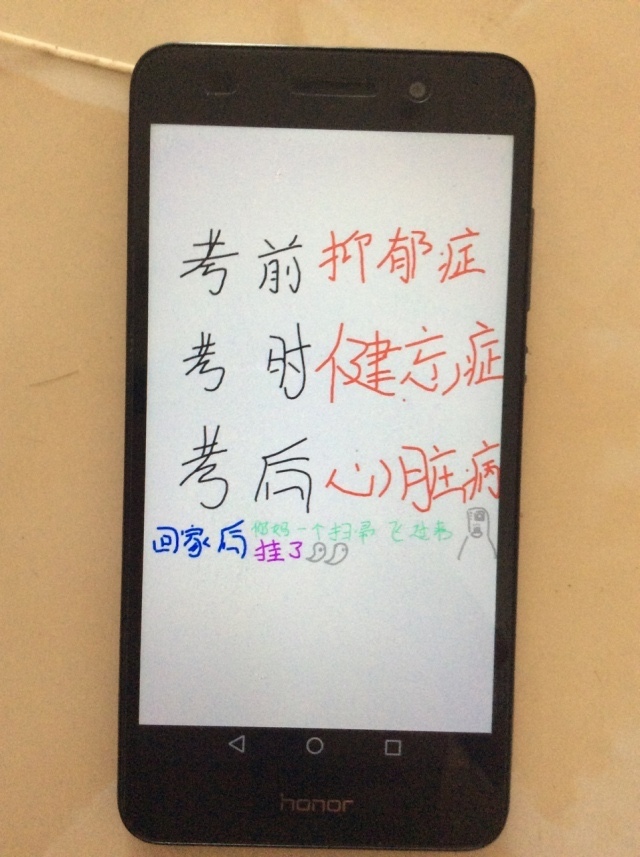 考前抑郁症
考时健忘症
考后心脏病
回家后你妈一个扫帚飞过来
挂了
honor